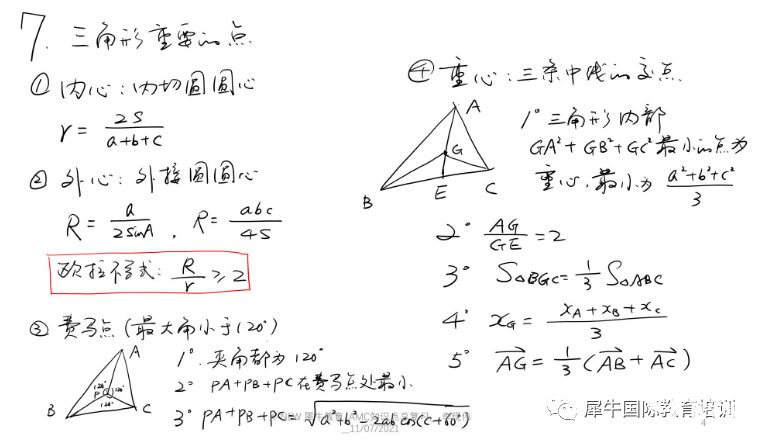 7. 三角形重要的点
① 内心：内切圆圆心
r = 2S/(a+b+c)
② 外心：外接圆圆心
R = a/(2sinA) , R = abc/(4S)
欧拉不等式：R/r ≥ 2
③ 费马点（最大角小于120°）
A
B
C
P
120°
120°
120°
1° 夹角都为120°
2° PA+PB+PC在费马点处最小
3° PA+PB+PC=√(a²+b²-2ab cos(C+60°))
④ 重心：三条中线的交点
A
B
C
G
E
1° 三角形内部
GA²+GB²+GC²最小的点为
重心,最小为 (a²+b²+c²)/3
2° AG/GE = 2
3° S△BGC = 1/3 S△ABC
4° x_G = (x_A+x_B+x_C)/3
5° AG→ = 1/3(AB→+AC→)
犀牛教育
AMC知识点总复习
11/07/2021
4
犀牛国际教育培训